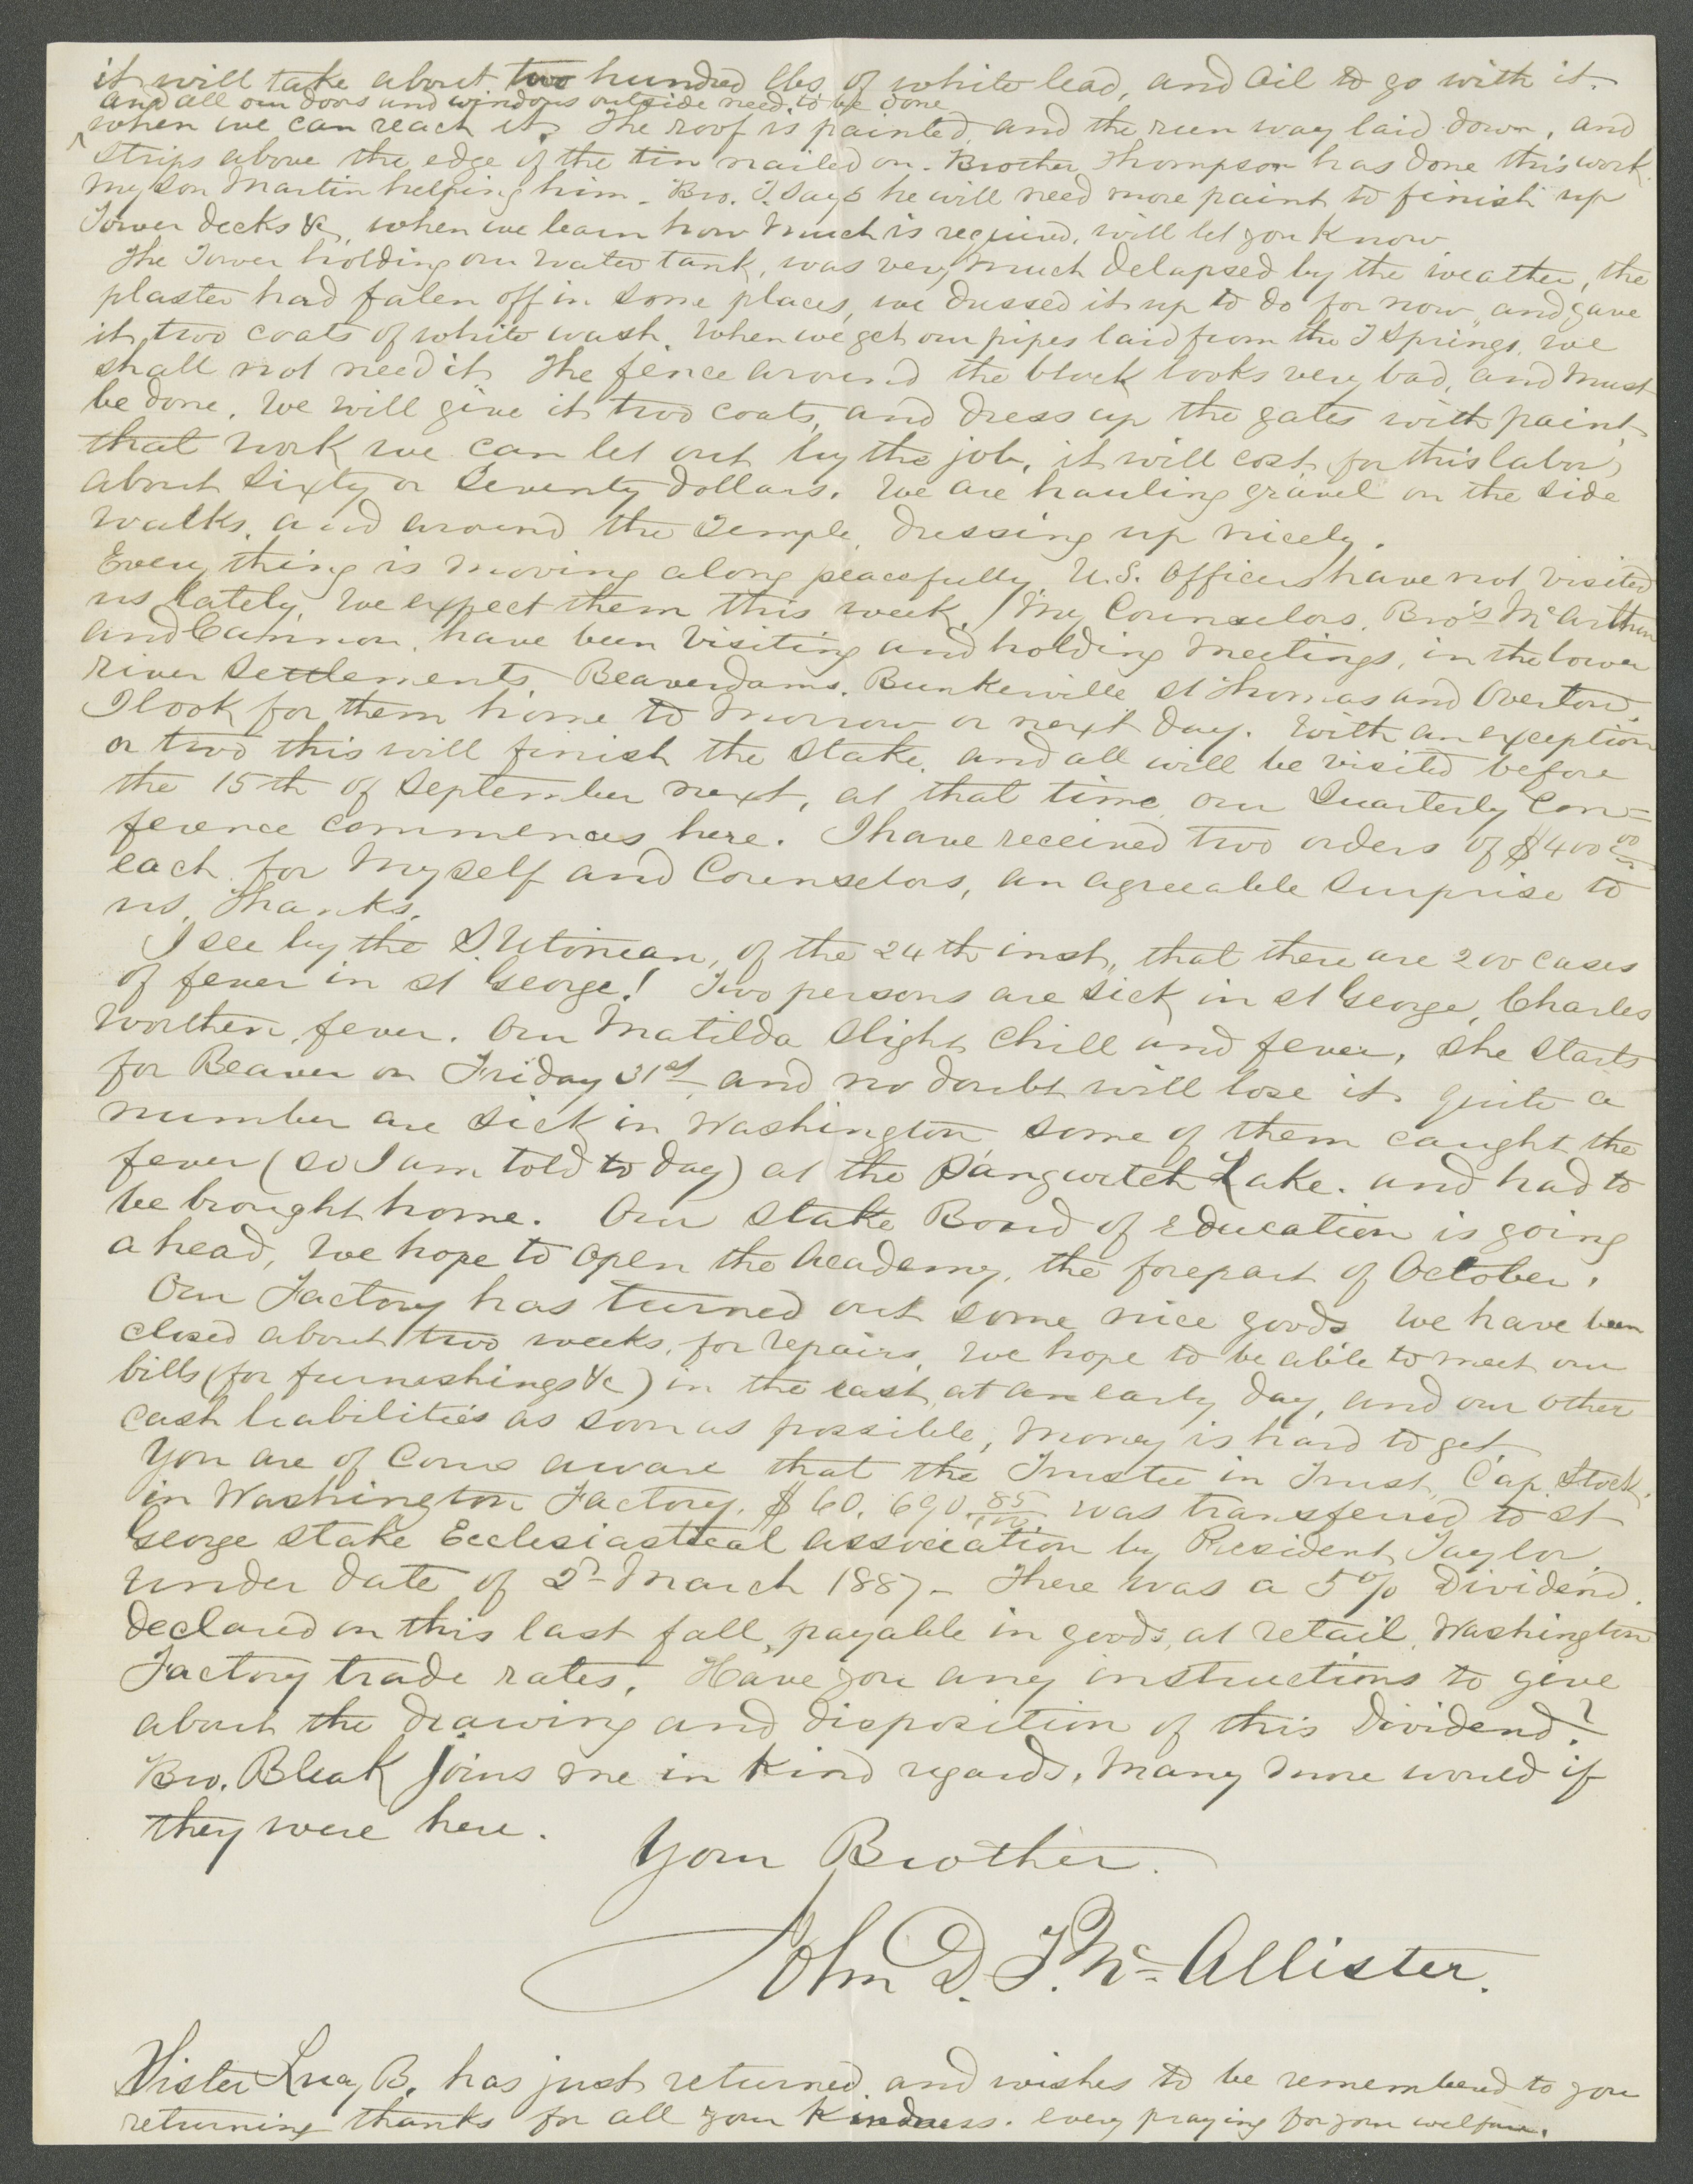 it will take about two hundred lbs of white lead, and Oil to go with it.
and all our doors and windows outside need to be done
when we can reach it. The roof is painted, and the run way laid down, and
strips above the edge of the tin nailed on. Brother Thompson has done this work
my son Martin helping him. Bro. T. Says he will need more paint to finish up
Tower decks &c, when we learn how much is required, will let you Know
The Tower holding our water tank, was very much delapsed by the weather, the
plaster had falen off in some places, we dressed it up to do for now, and gave
it two coats of white wash. When we get our pipes laid from the T Springs, we
shall not need it. The fence around the block looks very bad, and must
be done. We will give it two coats, and dress up the gates with paint,
that work we can let out by the job, it will cost for this labor,
about Sixty or Seventy Dollars. We are hauling gravel on the side
walks, and around the Temple, dressing up nicely.
Every thing is moving along peacefully, U.S. Officers have not visited
us lately, We expect them this week. My Counselors, Bro's McArthur
and Cannon, have been visiting and holding meetings, in the lower
river Settlements Beaverdams, Bunkerville St Thomas and Overton.
I look for them home to morrow or next day. With an exception
or two this will finish the Stake, and all will be visited before
the 15th of September next, at that time our Quarterly Con=
ference commences here. I have received two orders of $400 00
each for Myself and Counselors, an agreeable Surprise to
us, Thanks.
I see by the S. Utonian, of the 24th inst, that there are 200 cases
of fever in St George! Two persons are sick in St George, Charles
Worthen, fever. Our Matilda Slight Chill and fever, She Starts
for Beaver on Friday 31st, and no doubt will lose it. Quite a
number are sick in Washington some of them caught the
fever (so I am told to day) at the Panguitch Lake. and had to
be brought home. Our Stake Board of Education is going
a head, We hope to open the Academy, the forepart of October.
Our Factory has turned out some nice goods We have been
closed about two weeks, for repairs, We hope to be able to meet our
bills (for furnishings &c) in the east, at an early day, and our other
cash liabilities as soon as possible, Money is hard to get
You are of Cours aware that the Trustee in Trust, Cap. Stock,
in Washington Factory, $60,690.85/100 was transferred to St
George Stake Ecclesiastical Association by President Taylor
under date of 2d March 1887 - There was a 5% Dividend
declared on this last fall, payable in goods, at retail, Washington
Factory trade rates. Have you any instructions to give
about the drawing and disposition of this Dividend?
Bro. Bleak joins me in Kind regards, Many more would if
they were here.
Your Brother.
John D. T. McAllister.
Sister Lucy B. has just returned, and wishes to be remembered to you
returning thanks for all your Kindness. every praying for your welfare.